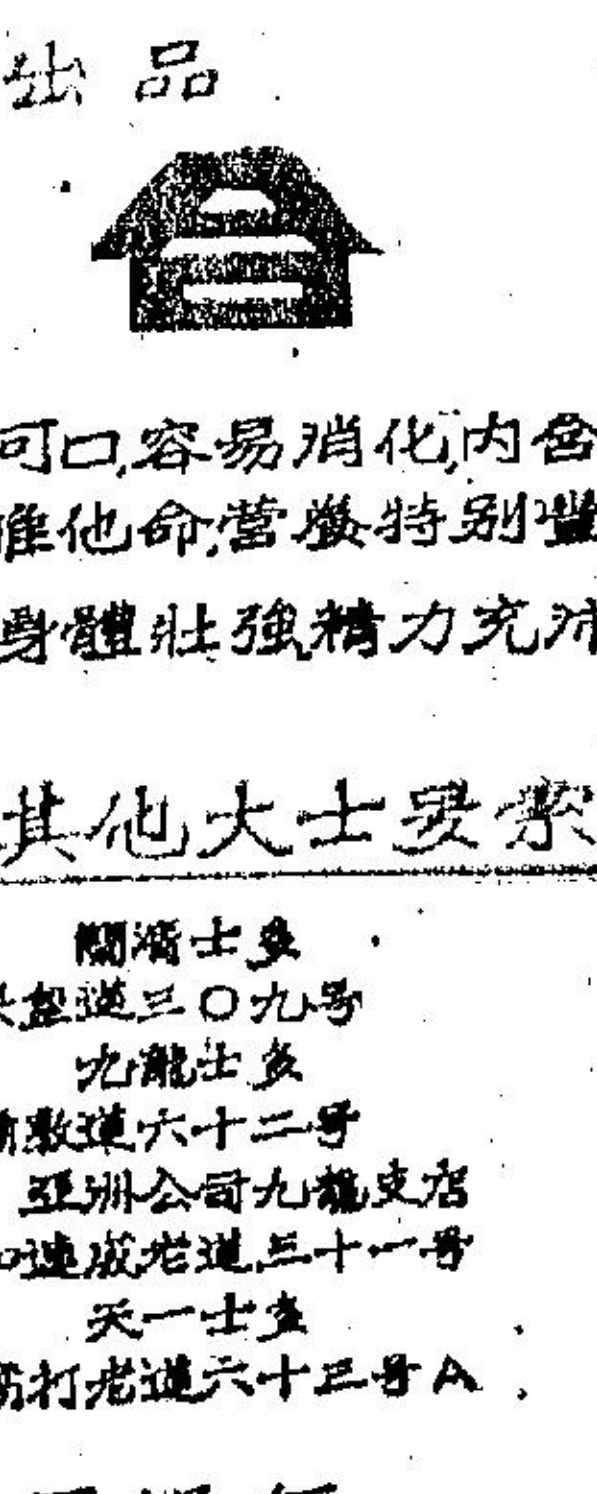 出品
可口,容易消化,内含
維他命,營養特別豐
身體壯強,精力充沛
其他大士多
士多
道三〇九号
九龍士多
道六十二号
亞洲公司九龍支店
連威老道三十一号
天一士多
窩打老道六十三号A